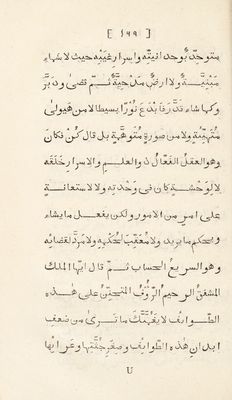 [ ١٤٩ ]
متوحّد بوحدانيته واسرار غيبه حيث لا سماء
مبنيّة ولا ارض مدحيّة ثم قضى ودبّر
وكما شاء قدّر فابدع نورا بسيطا لا من هيولى
متهيّئة ولا من صورة متوهّمة بل قال كن فكان
وهو العقل الفعّال ذو العلم والاسرار خلقه
لا لوحشة كان فى وحدته ولا لاستعانة
على امر من الامور ولكن يفعل ما يشاء
ويحكم ما يريد ولا معقّب لحكمه ولا مردّ لقضائه
وهو السريع الحساب ثم قال ايها الملك
المشفق الرحيم الرؤف المتحنّن على هذه
الطوايف لا يغمّنّك ما ترى من ضعف
ابدان هذه الطوايف وصغر جثّتها وعرائها
U